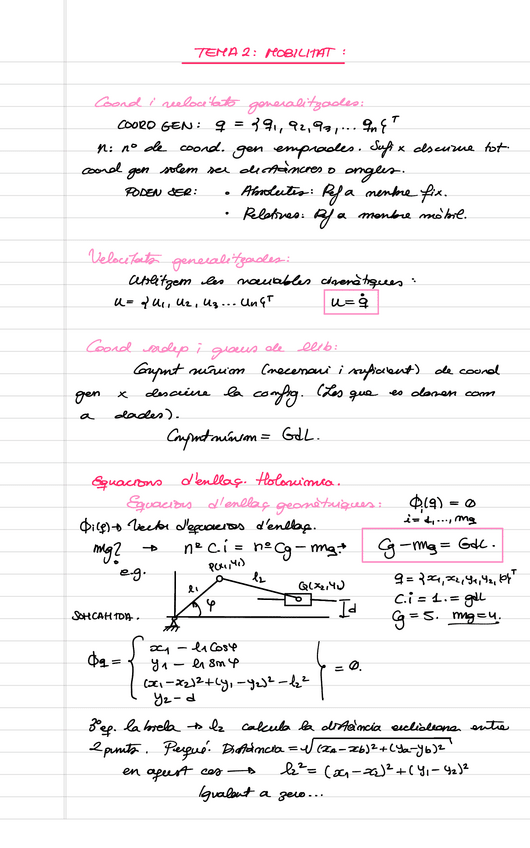 TEMA 2: MOBILITAT:
Coord i velocitats generalitzades:
COORD GEN: q = {q1, q2, q3, ... qn}^T
n: nº de coord. gen emprades. Suf x descriure tot.
coord gen solem ser distàncies o angles.
PODEN SER: • Absolutes: Ref a membre fix.
• Relatives: Ref a membre mòbil.
Velocitats generalitzades:
Utilitzem les variables cinemàtiques:
u = {u1, u2, u3 ... un}^T u = q̇
Coord indep i graus de llib:
Conjunt mínim (necessari i suficient) de coord
gen x descriure la config. (Les que es donen com
a dades).
Conjunt mínim = GdL.
Equacions d'enllaç. Holonimea.
Equacions d'enllaç geomètriques: ϕi(q) = 0
i = 1, ..., mg
ϕi(q) → Vector d'equacions d'enllaç.
mg? → nº C.i = nº Cg - mg → Cg - mg = GdL.
e.g. P(x1,y1) l1 l2 Q(x2,y2) φ d
q = {x1, x2, y1, y2, φ}^T
C.i = 1 = gdl
Cg = 5. mg = 4.
ϕq = { x1 - l1 cosφ
y1 - l1 sinφ
(x1-x2)² + (y1-y2)² - l2²
y2 - d } = 0.
3ª eq. la biela → l2 calcula la distància euclidiana entre
2 punts. Perquè: Distància = √(xa-xb)² + (ya-yb)²
en aquest cas → l2² = (x1-x2)² + (y1-y2)²
Igualant a zero...